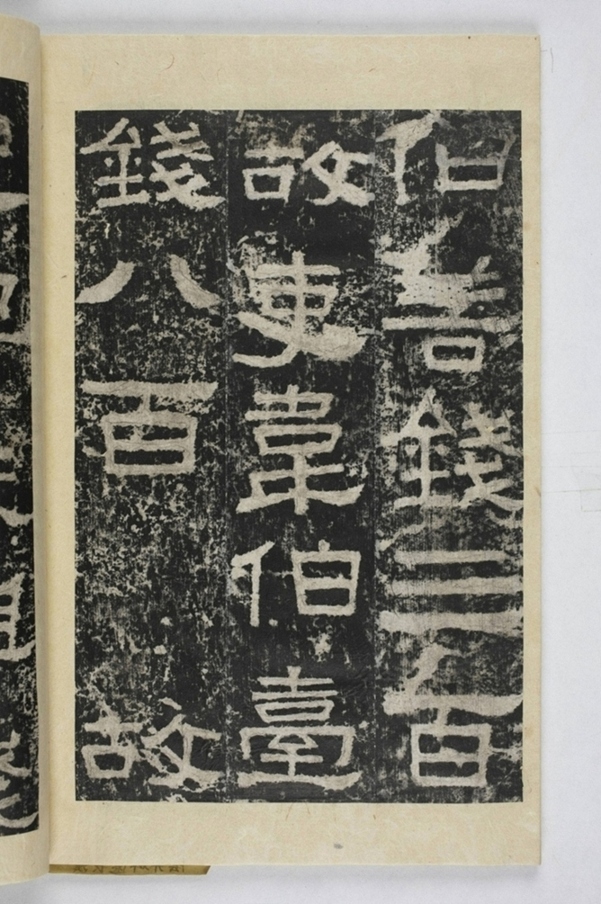 伯善錢三百
故吏韋伯臺
錢八百 故